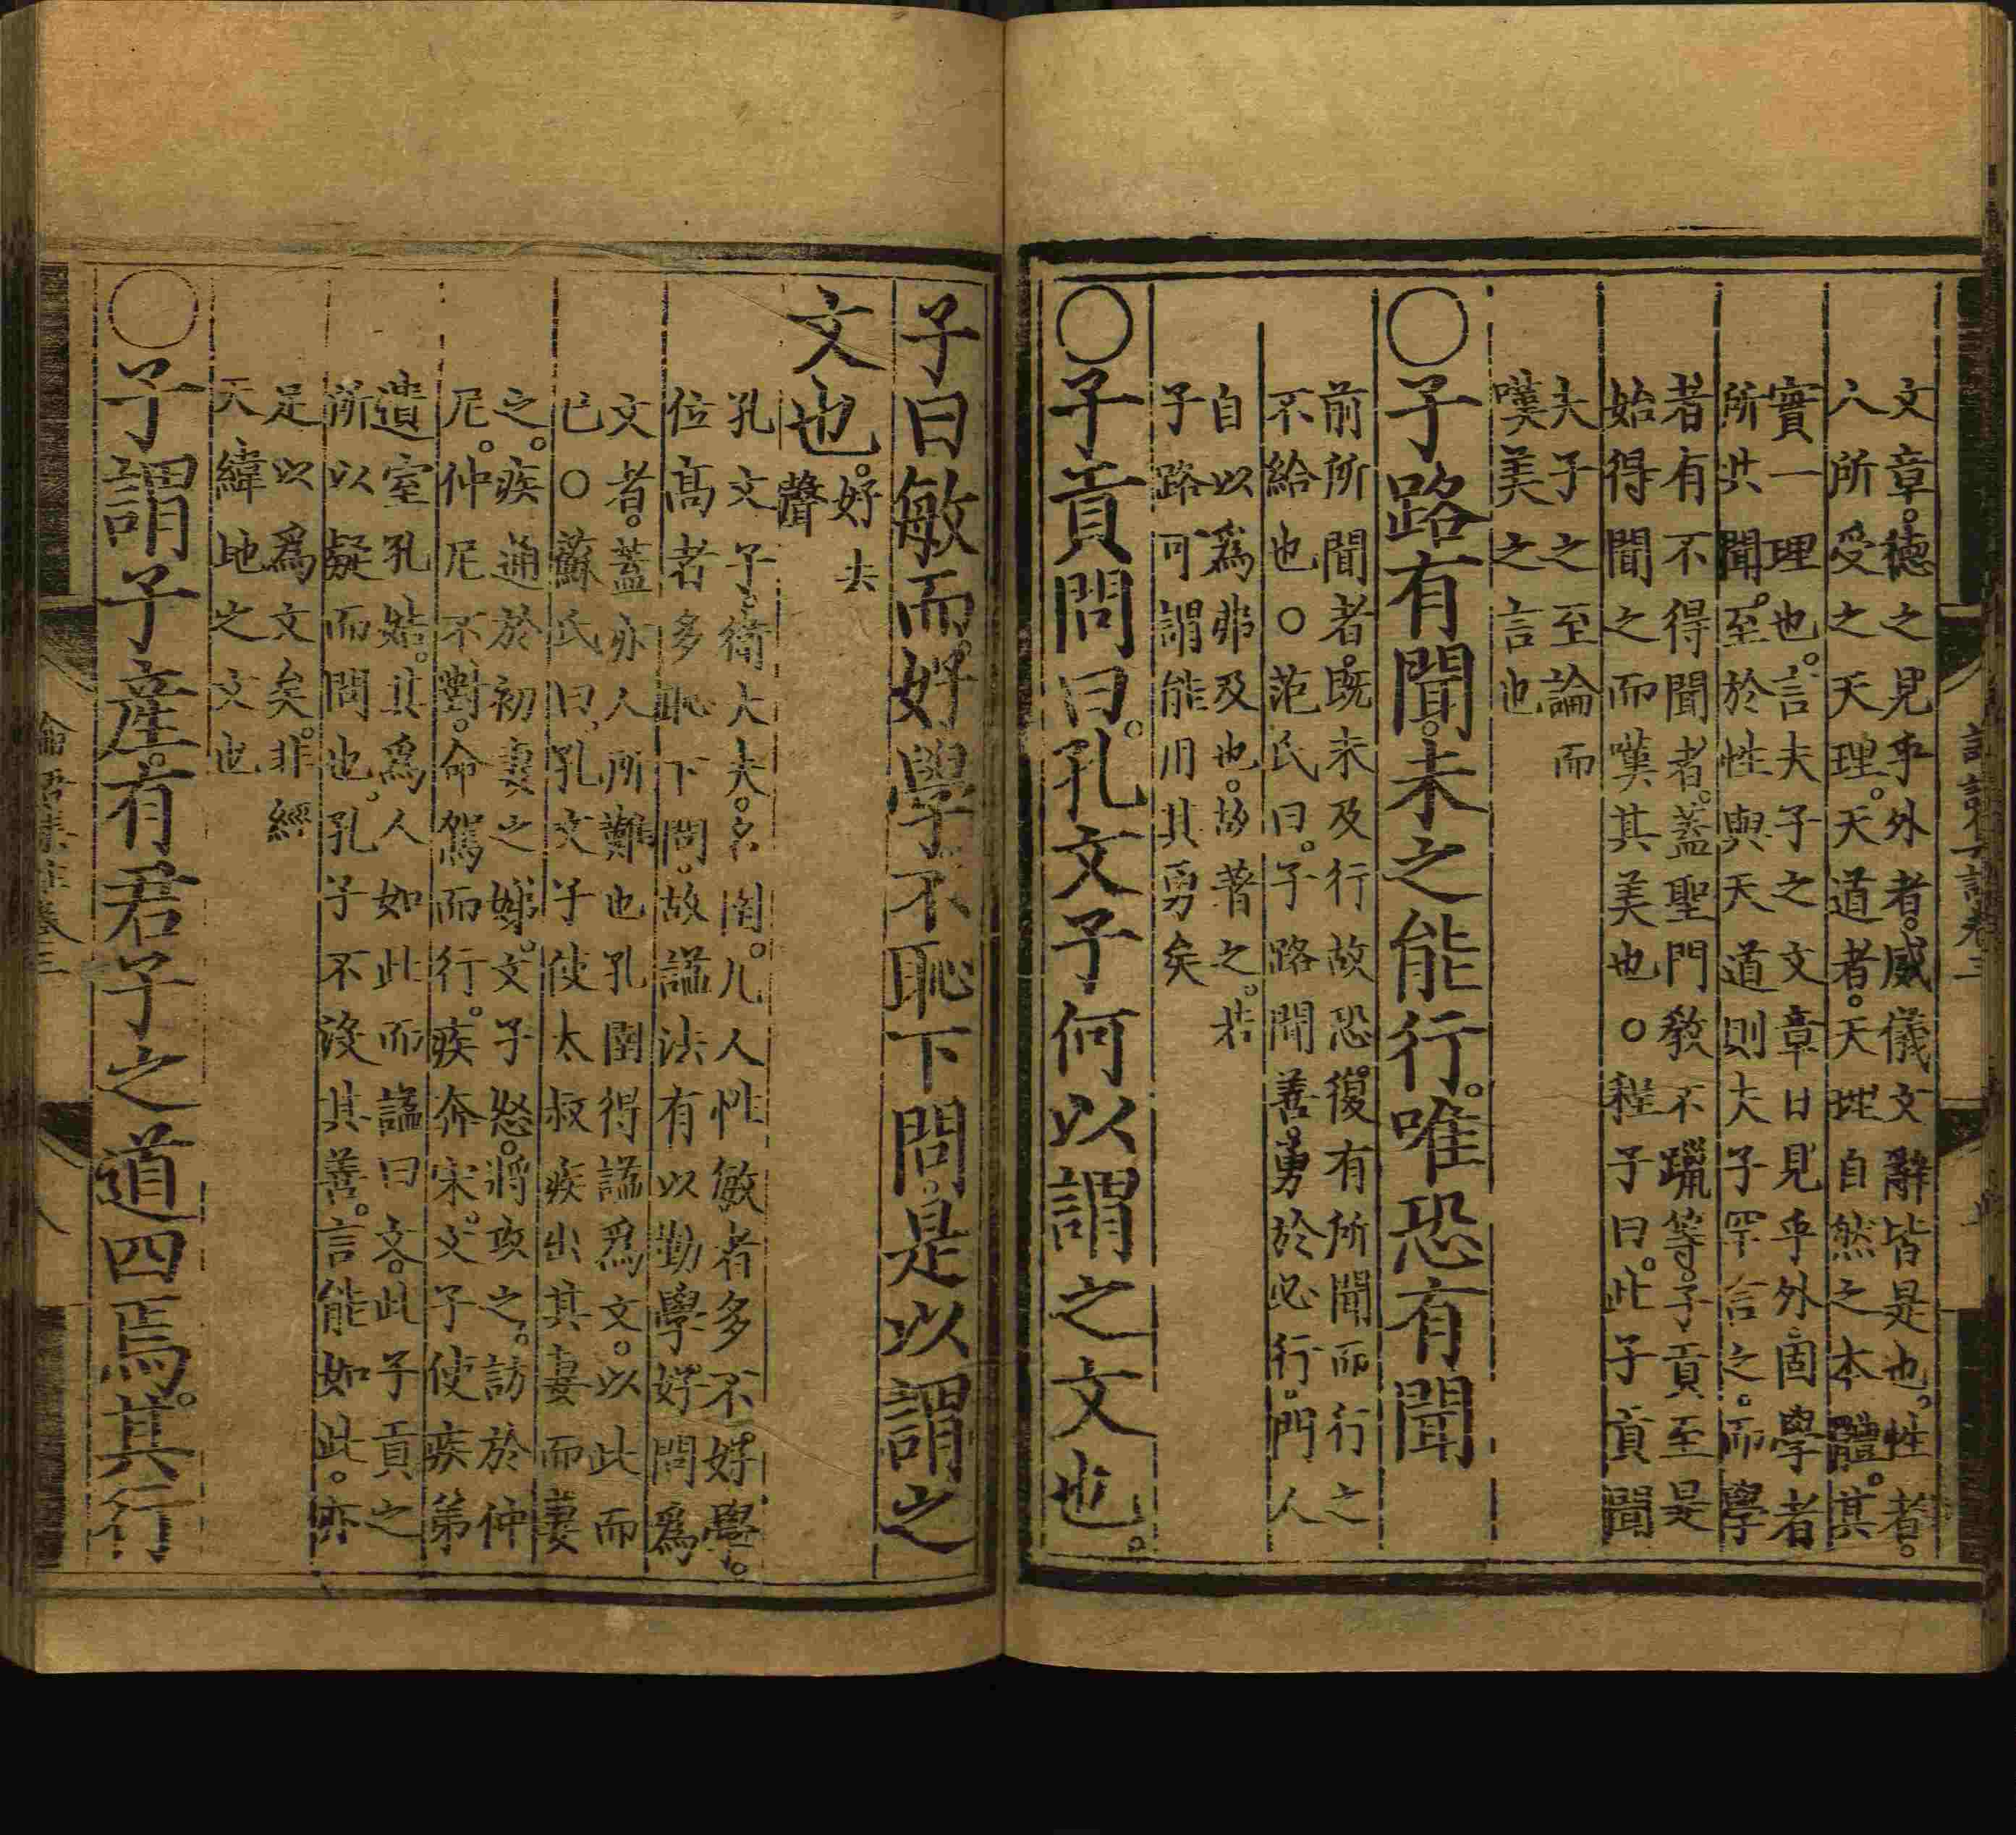 文章。德之見乎外者。威儀文辭皆是也。性者。
人所受之天理。天道者。天理自然之本體。其
實一理也。言夫子之文章日見乎外固學者
所共聞。至於性與天道則夫子罕言之。而學
者有不得聞者。蓋聖門教不躐等。子貢至是
始得聞之而嘆其美也○程子曰。此子貢聞
夫子之至論而
嘆美之言也
○子路有聞。未之能行。唯恐有聞
前所聞者。既未及行故恐復有所聞而行之
不給也○范氏曰。子路聞善。勇於必行。門人
自以爲弗及也。故著之。若
子路可謂能用其勇矣
○子貢問曰。孔文子何以謂之文也。
子曰敏而好學不恥下問。是以謂之
文也。
好去
聲
孔文子。衛大夫。名圉。凡人性敏者多不好學。
位高者多恥下問。故謚法有以勤學好問爲
文者。蓋亦人所難也孔圉得謚爲文。以此而
已○蘇氏曰。孔文子使太叔疾出其妻而妻
之。疾通於初妻之娣。文子怒。將攻之。訪於仲
尼。仲尼不對。命駕而行。疾奔宋。文子使疾弟
遺室孔姞。其爲人如此而謚曰文。此子貢之
所以疑而問也。孔子不沒其善。言能如此。亦
足以爲文矣。非經
天緯地之文也
○子謂子產。有君子之道四焉。其行